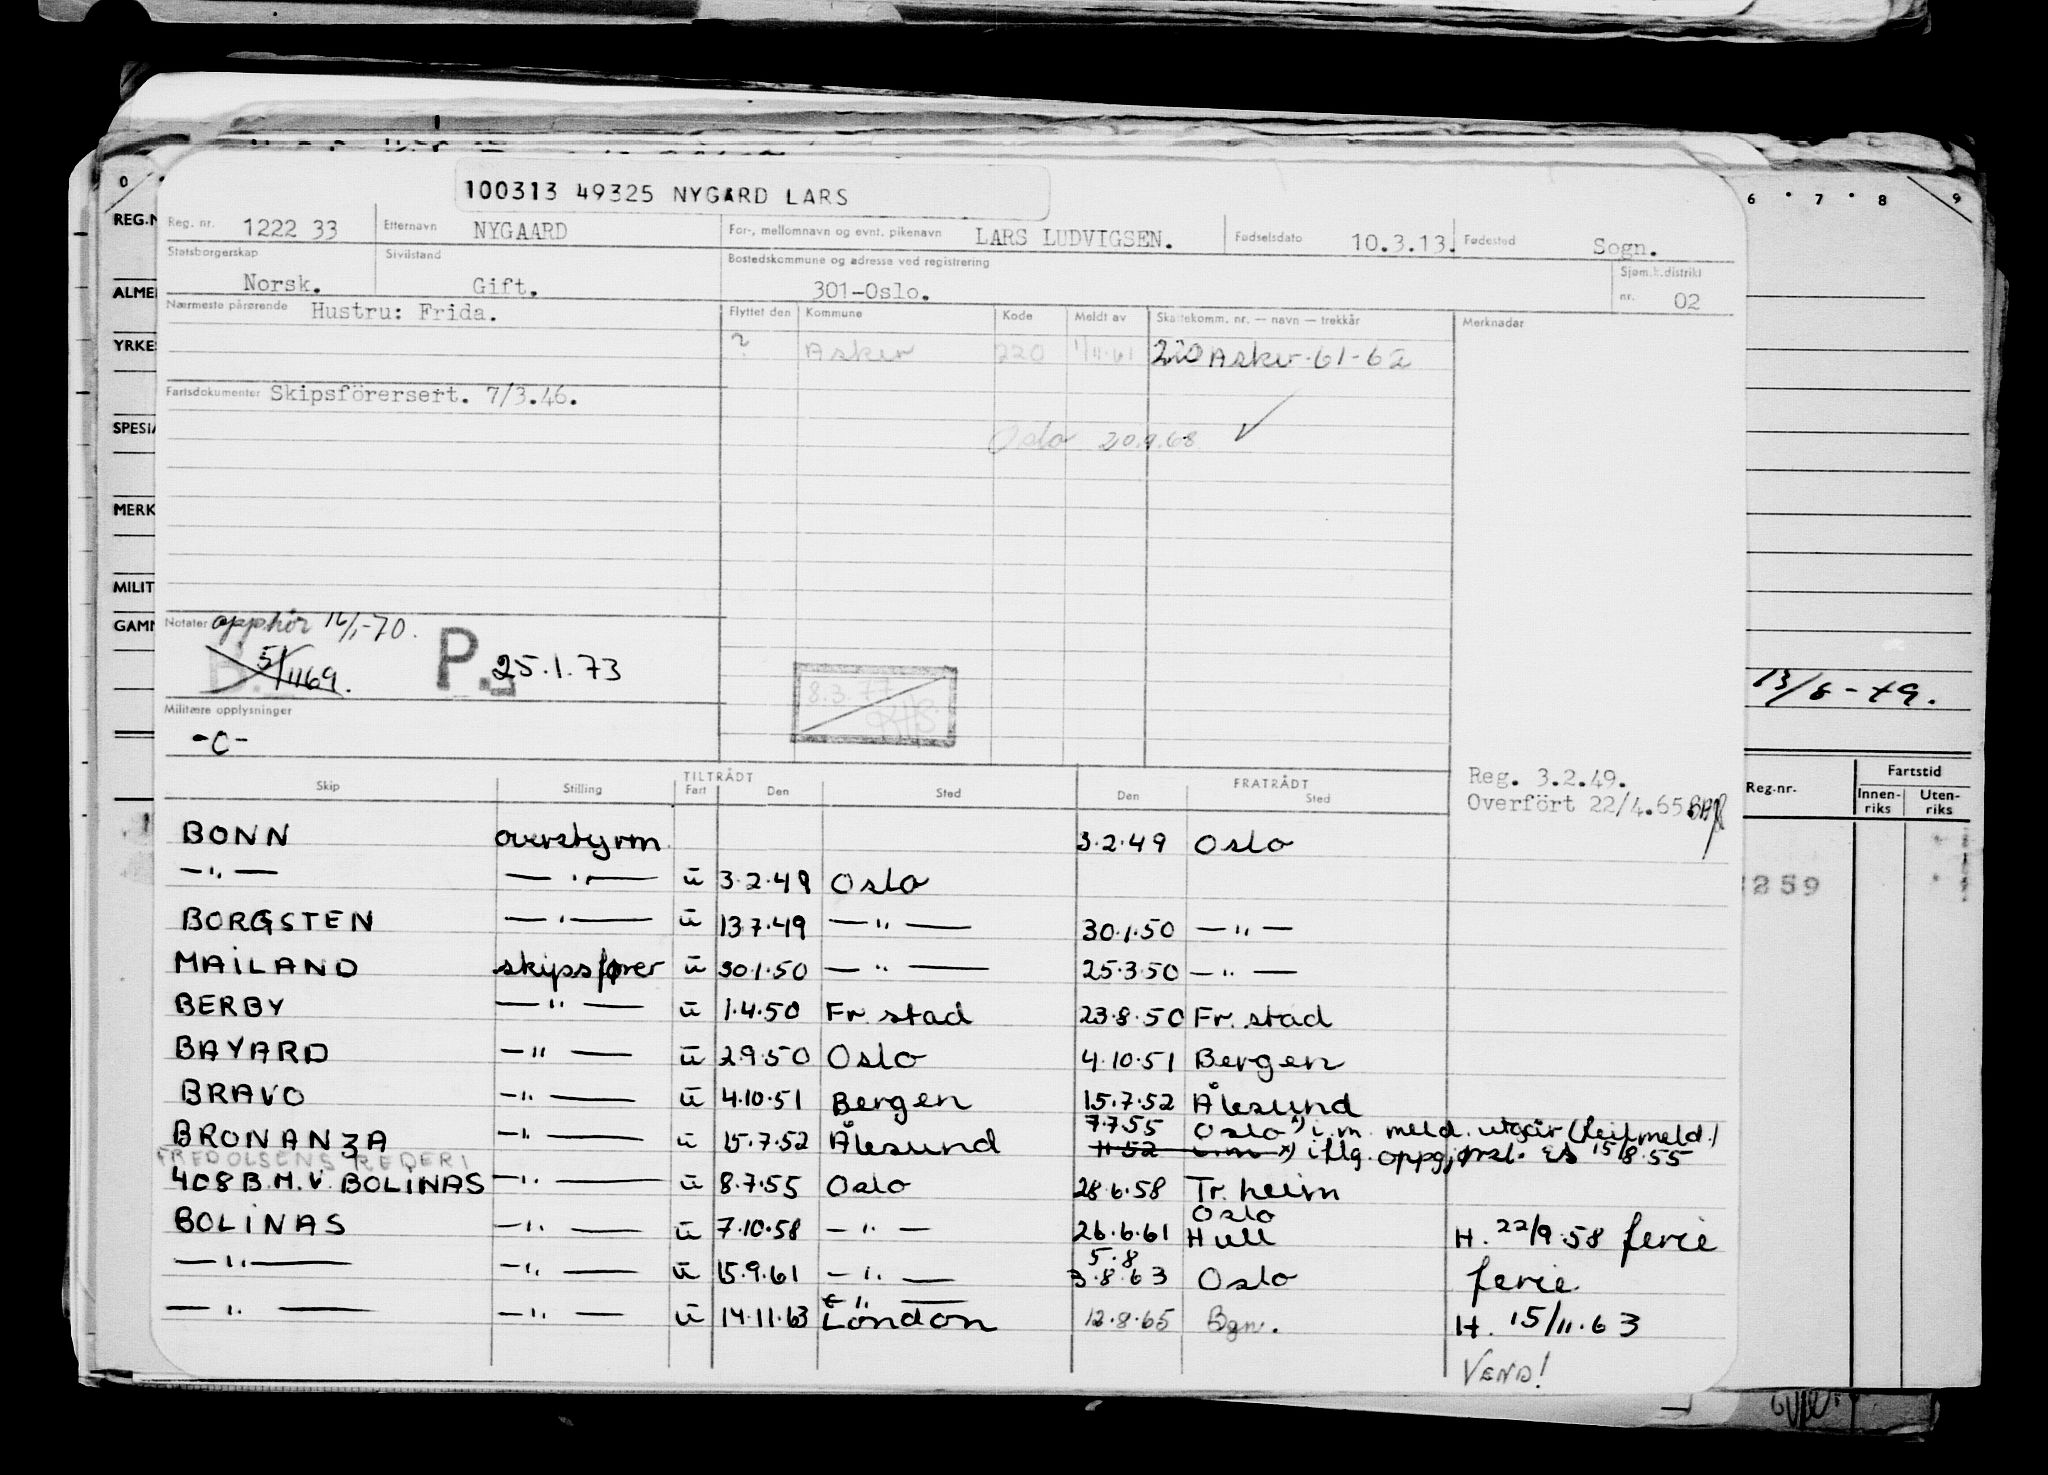 100313 49325 NYGARD LARS
Reg. nr. 1222 33 Etternavn NYGAARD For-, mellomnavn og evnt. pikenavn LARS LUDVIGSEN. Fødselsdato 10.3.13. Fødested Sogn.
Statsborgerskap Norsk. Sivilstand Gift. Bostedskommune og adresse ved registrering 301-Oslo. Sjøm.k.distrikt nr. 02
Nærmeste pårørende Hustru: Frida. Flyttet den Kommune Kode Meldt av Skattekomm. nr. — navn — trekkår Merknader
? Asker 220 1/11.61 220 Asker 61-62
Fartsdokumenter Skipsförersert. 7/3.46.
Oslo 20.9.68 ✓
Notater opphör 16/1-70.
B. 5/1169. P. 25.1.73
8.3.77
Militære opplysninger
-C-
Reg. 3.2.49.
Overfört 22/4.65
Skip Stilling TILTRÅDT Fart Den Sted FRATRÅDT Den Sted
BONN overstyrm. 3.2.49 Oslo
—"— —"— u 3.2.49 Oslo
BORGSTEN —"— u 13.7.49 —"— 30.1.50 —"—
MAILAND skipsfører u 30.1.50 —"— 25.3.50 —"—
BERBY —"— u 1.4.50 Fr.stad 23.8.50 Fr.stad
BAYARD —"— u 2.9.50 Oslo 4.10.51 Bergen
BRAVO —"— u 4.10.51 Bergen 15.7.52 Ålesund
BRONANZA —"— u 15.7.52 Ålesund 7.7.55 Oslo x) i.m. meld. utgår (feilmeld.)
11.52 x) iflg. oppgj. 15/8.55
FRED OLSENS REDERI
408 B.M.V. BOLINAS —"— u 8.7.55 Oslo 28.6.58 Tr.heim
BOLINAS —"— u 7.10.58 —"— 26.6.61 Oslo Hull H. 22/9.58 ferie
—"— —"— u 15.9.61 —"— 5.8 3.8.63 Oslo ferie
—"— —"— u 14.11.63 —"— London 12.8.65 Bgn. H. 15/11.63
VEND!
0
REG.N
ALME
YRKE
SPESI
MERK
MILIT
GAMM
6 • 7 • 8 9
13/8-49.
Reg.nr. Fartstid
Innen-riks Uten-riks
259